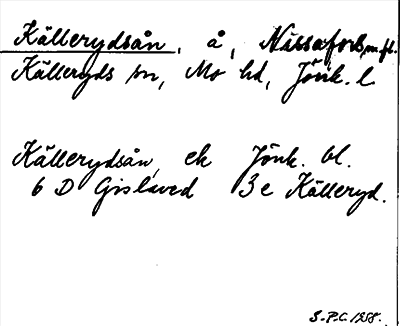 Källerydsån, å, Nissafors, m.fl.
Källeryds sn, Mo hd, Jönk. l.
Källerydsån, ek Jönk. bl.
6 D Gislaved 3e Källeryd.
S.P.C. 1958.